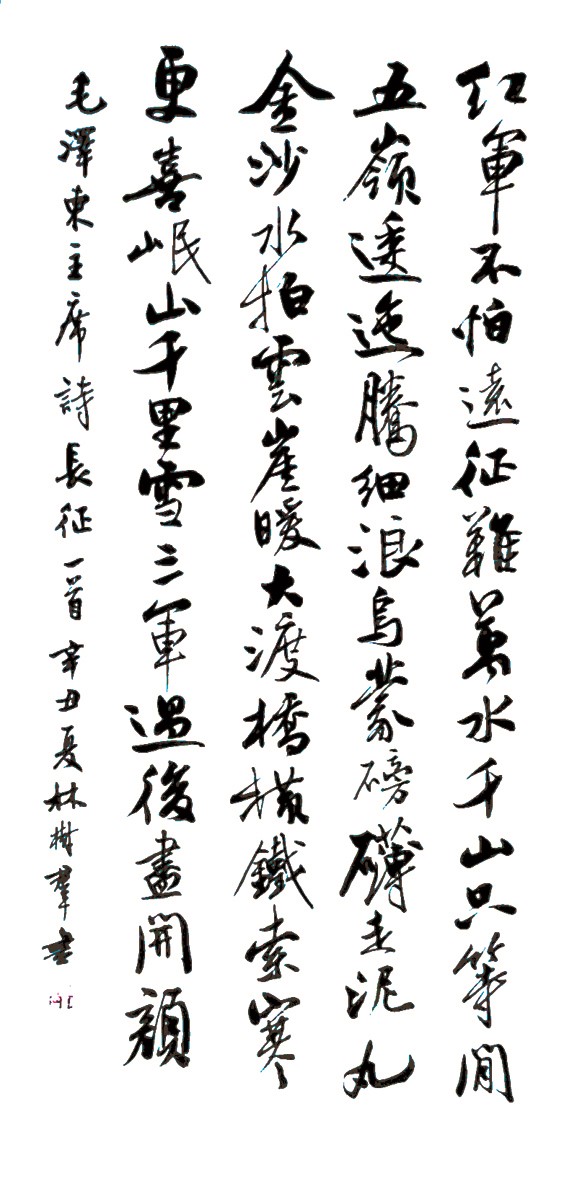 紅軍不怕遠征難萬水千山只等閒
五嶺逶迤騰細浪烏蒙磅礴走泥丸
金沙水拍雲崖暖大渡橋橫鐵索寒
更喜岷山千里雪三軍過後盡開顏
毛澤東主席詩長征一首辛丑夏林樹羣書